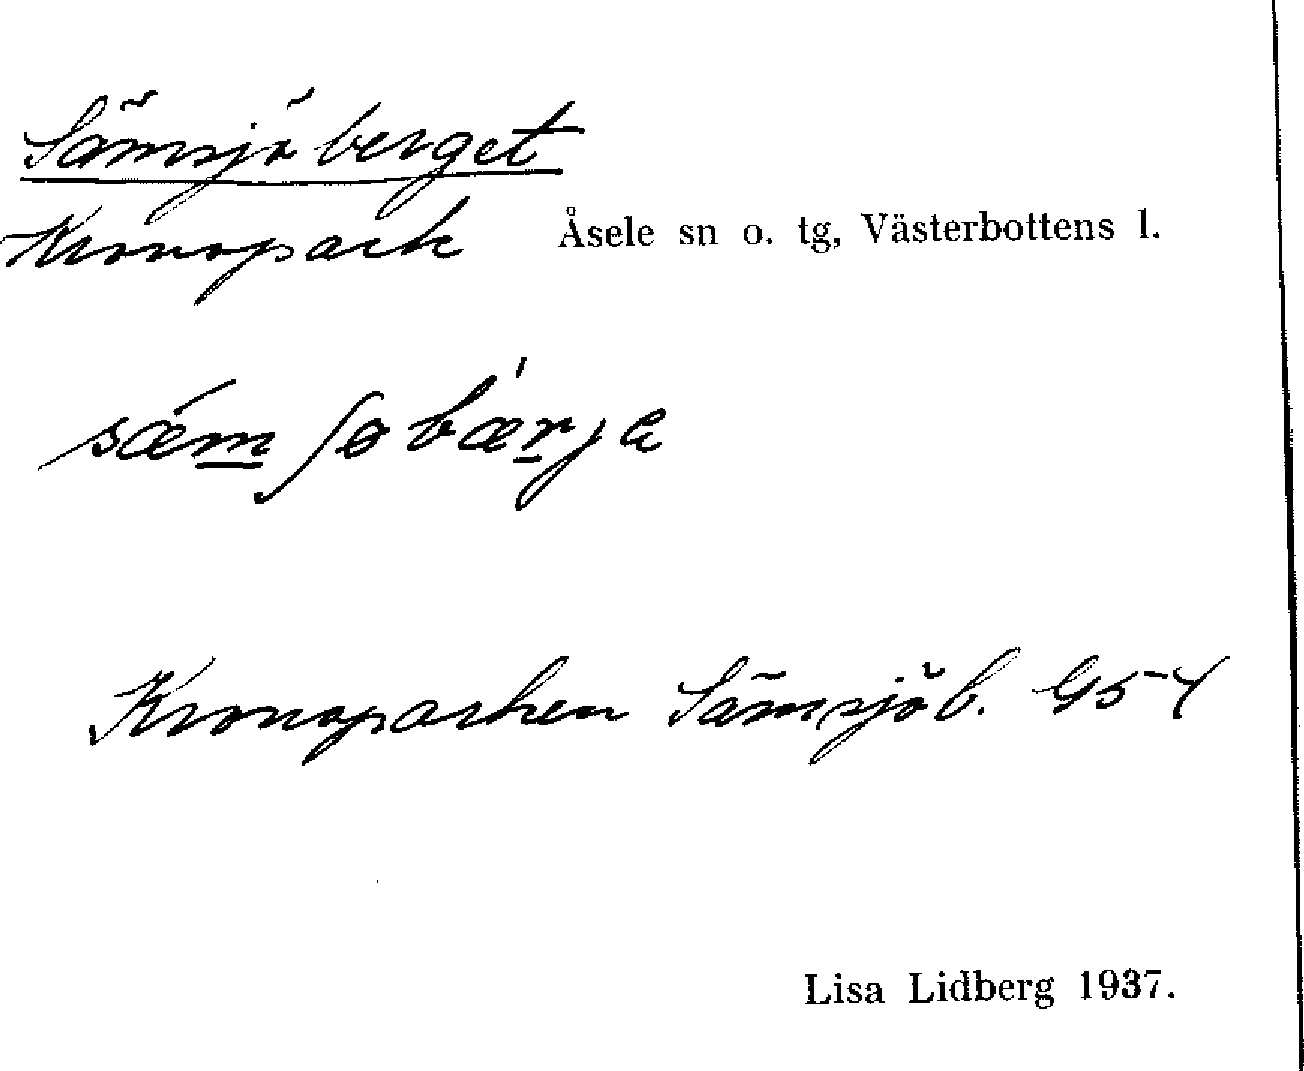 Sämsjöberget
Kronopark Åsele sn o. tg, Västerbottens l.
Kronoparken Sämsjöb. G54
Lisa Lidberg 1937.